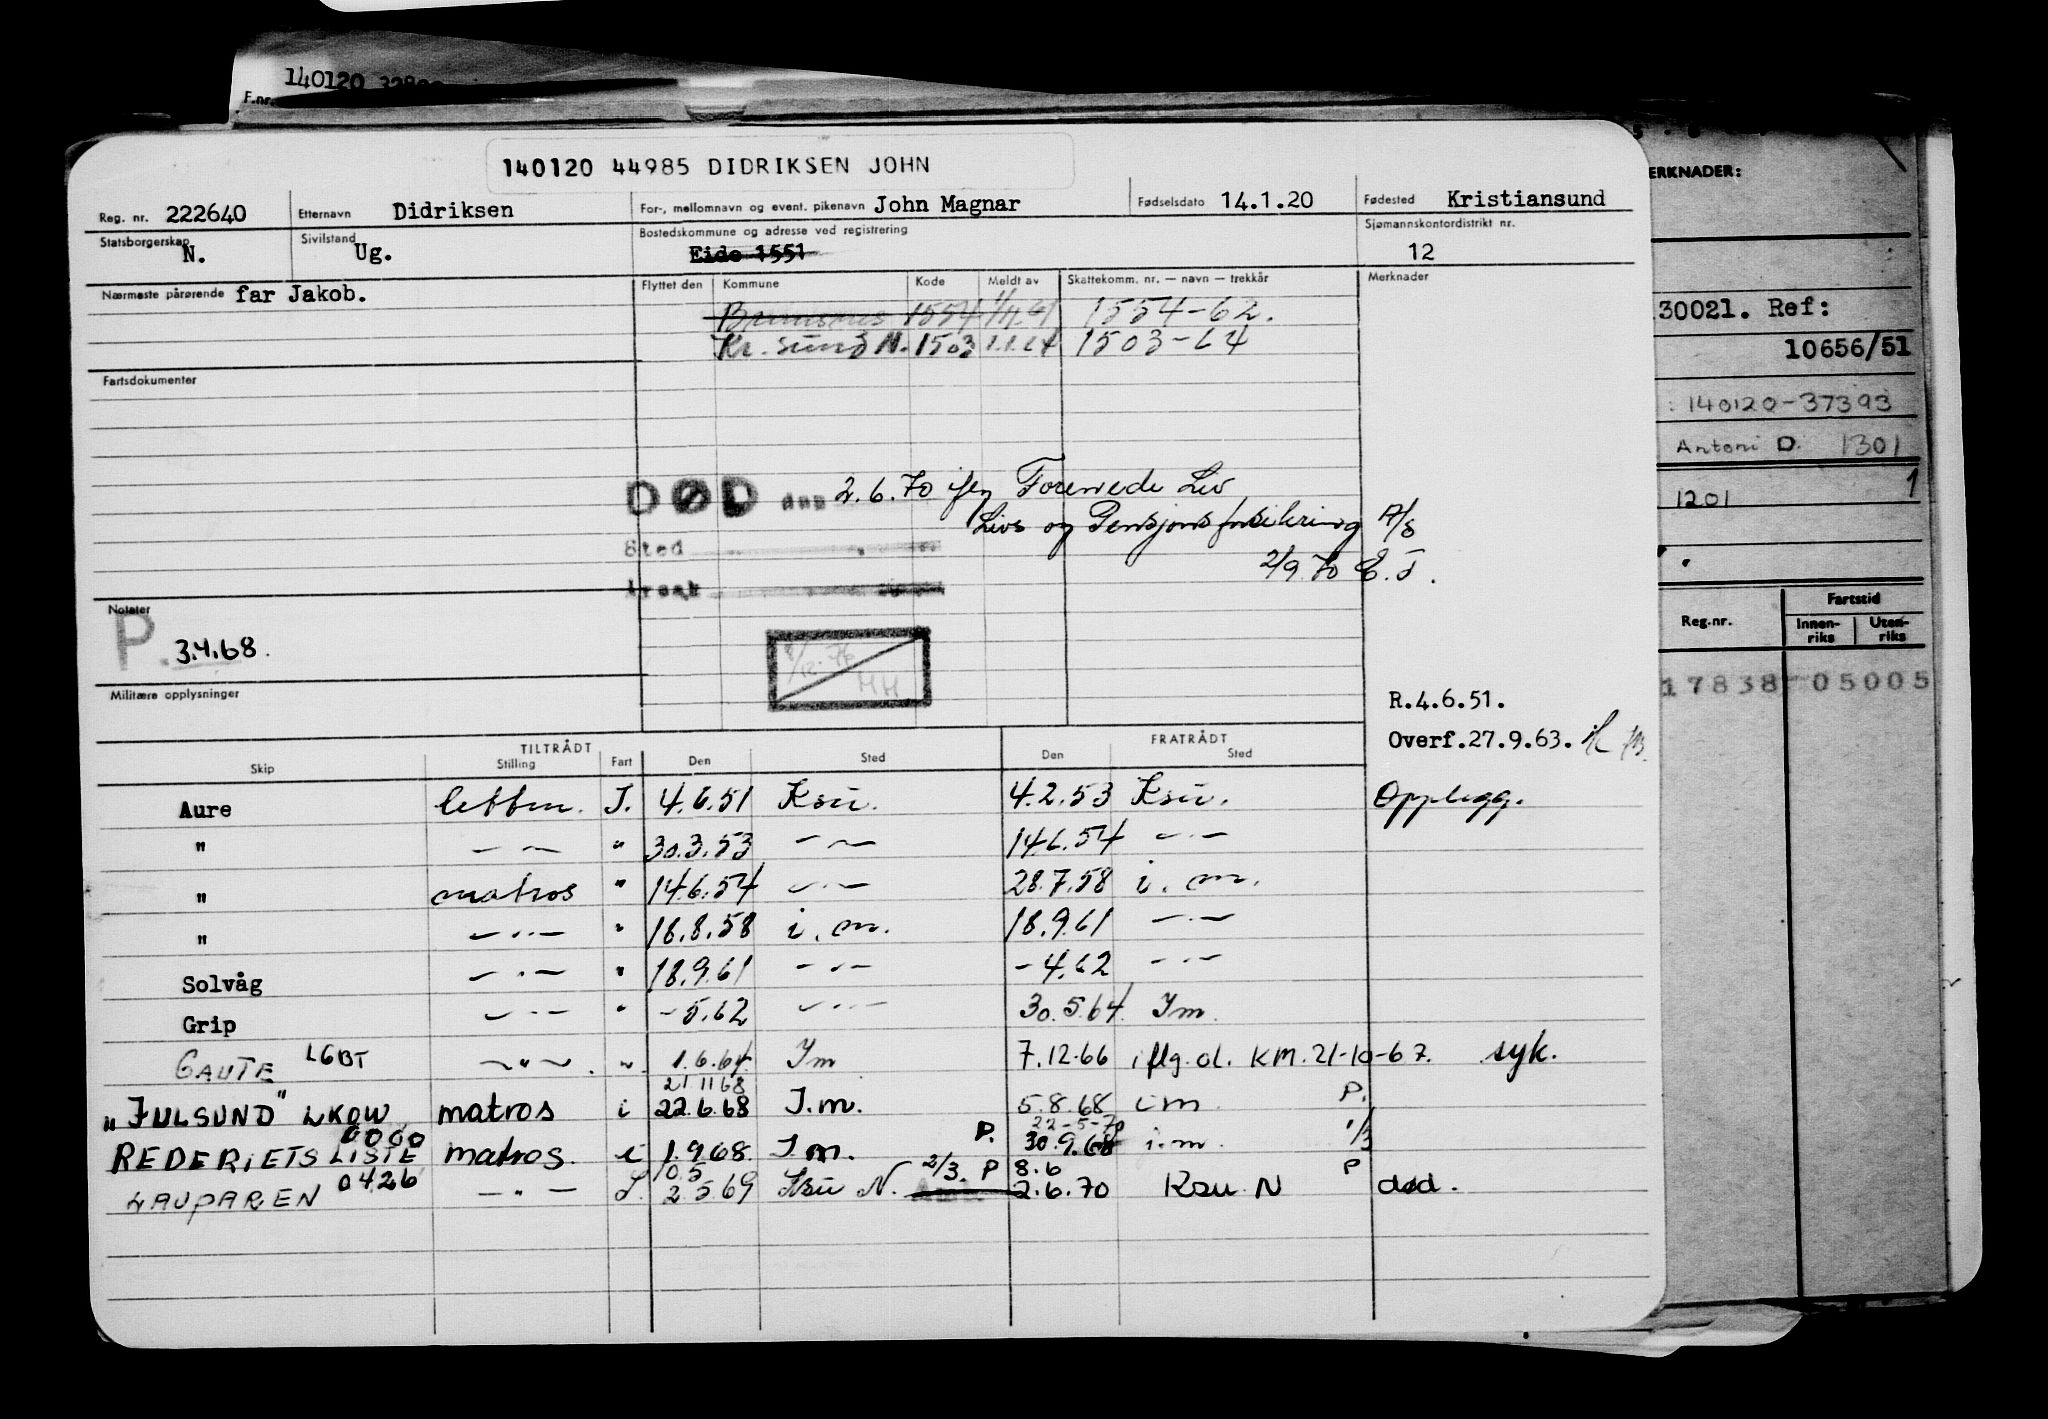 140120
F.nr.
140120 44985 DIDRIKSEN JOHN
Reg. nr. 222640 Etternavn Didriksen For-, mellomnavn og event. pikenavn John Magnar Fødselsdato 14.1.20 Fødested Kristiansund
Statsborgerskap N. Sivilstand Ug. Bostedskommune og adresse ved registrering Eide 1551 Sjømannskontordistrikt nr. 12
Nærmeste pårørende far Jakob. Flyttet den Kommune Kode Meldt av Skattekomm. nr. — navn — trekkår Merknader
1554 1554-62.
Kr. sund N. 1503 1.1.64 1503-64
Fartsdokumenter
DØD den 2.6.70 iflg Forenede Liv
Livs og Pensjonsforsikring A/S
Sted
2/9.70 E.T.
Årsak
Notater
P. 3.4.68.
8/12.76
HH
Militære opplysninger
R.4.6.51.
Overf.27.9.63.
TILTRÅDT FRATRÅDT
Skip Stilling Fart Den Sted Den Sted
Aure lettm. I. 4.6.51 Ksu. 4.2.53 Ksu. Opplegg.
" — " — " 30.3.53 — " — 14.6.54 — " —
" matros " 14.6.54 — " — 28.7.58 i. m.
" — " — " 18.8.58 i. m. 18.9.61 — " —
Solvåg — " — " 18.9.61 — " — - 4.62 — " —
Grip — " — " - 5.62 — " — 30.5.64 Im.
GAUTE LGBT — " — . " 1.6.64 Im 7.12.66 iflg. d. KM. 21-10-67. syk.
21 11 68
"JULSUND" LKOW matros i 22.6.68 I.m. 5.8.68 im P.
0000 22-5-70
REDERIETS LISTE matros. i 1.9.68. I.m. P. 30.9.68 i.m. 1/3
10.5 2/3. P 8.6 P
LAUPAREN 0426 — " — I. 2.5.69 Ksu N. 2.6.70 Ksu. N død.
ERKNADER:
30021. Ref:
10656/51
: 140120-37393
Antoni D. 1301
1201 1
Reg.nr. Fartstid
Innen-riks Uten-riks
17838 05005